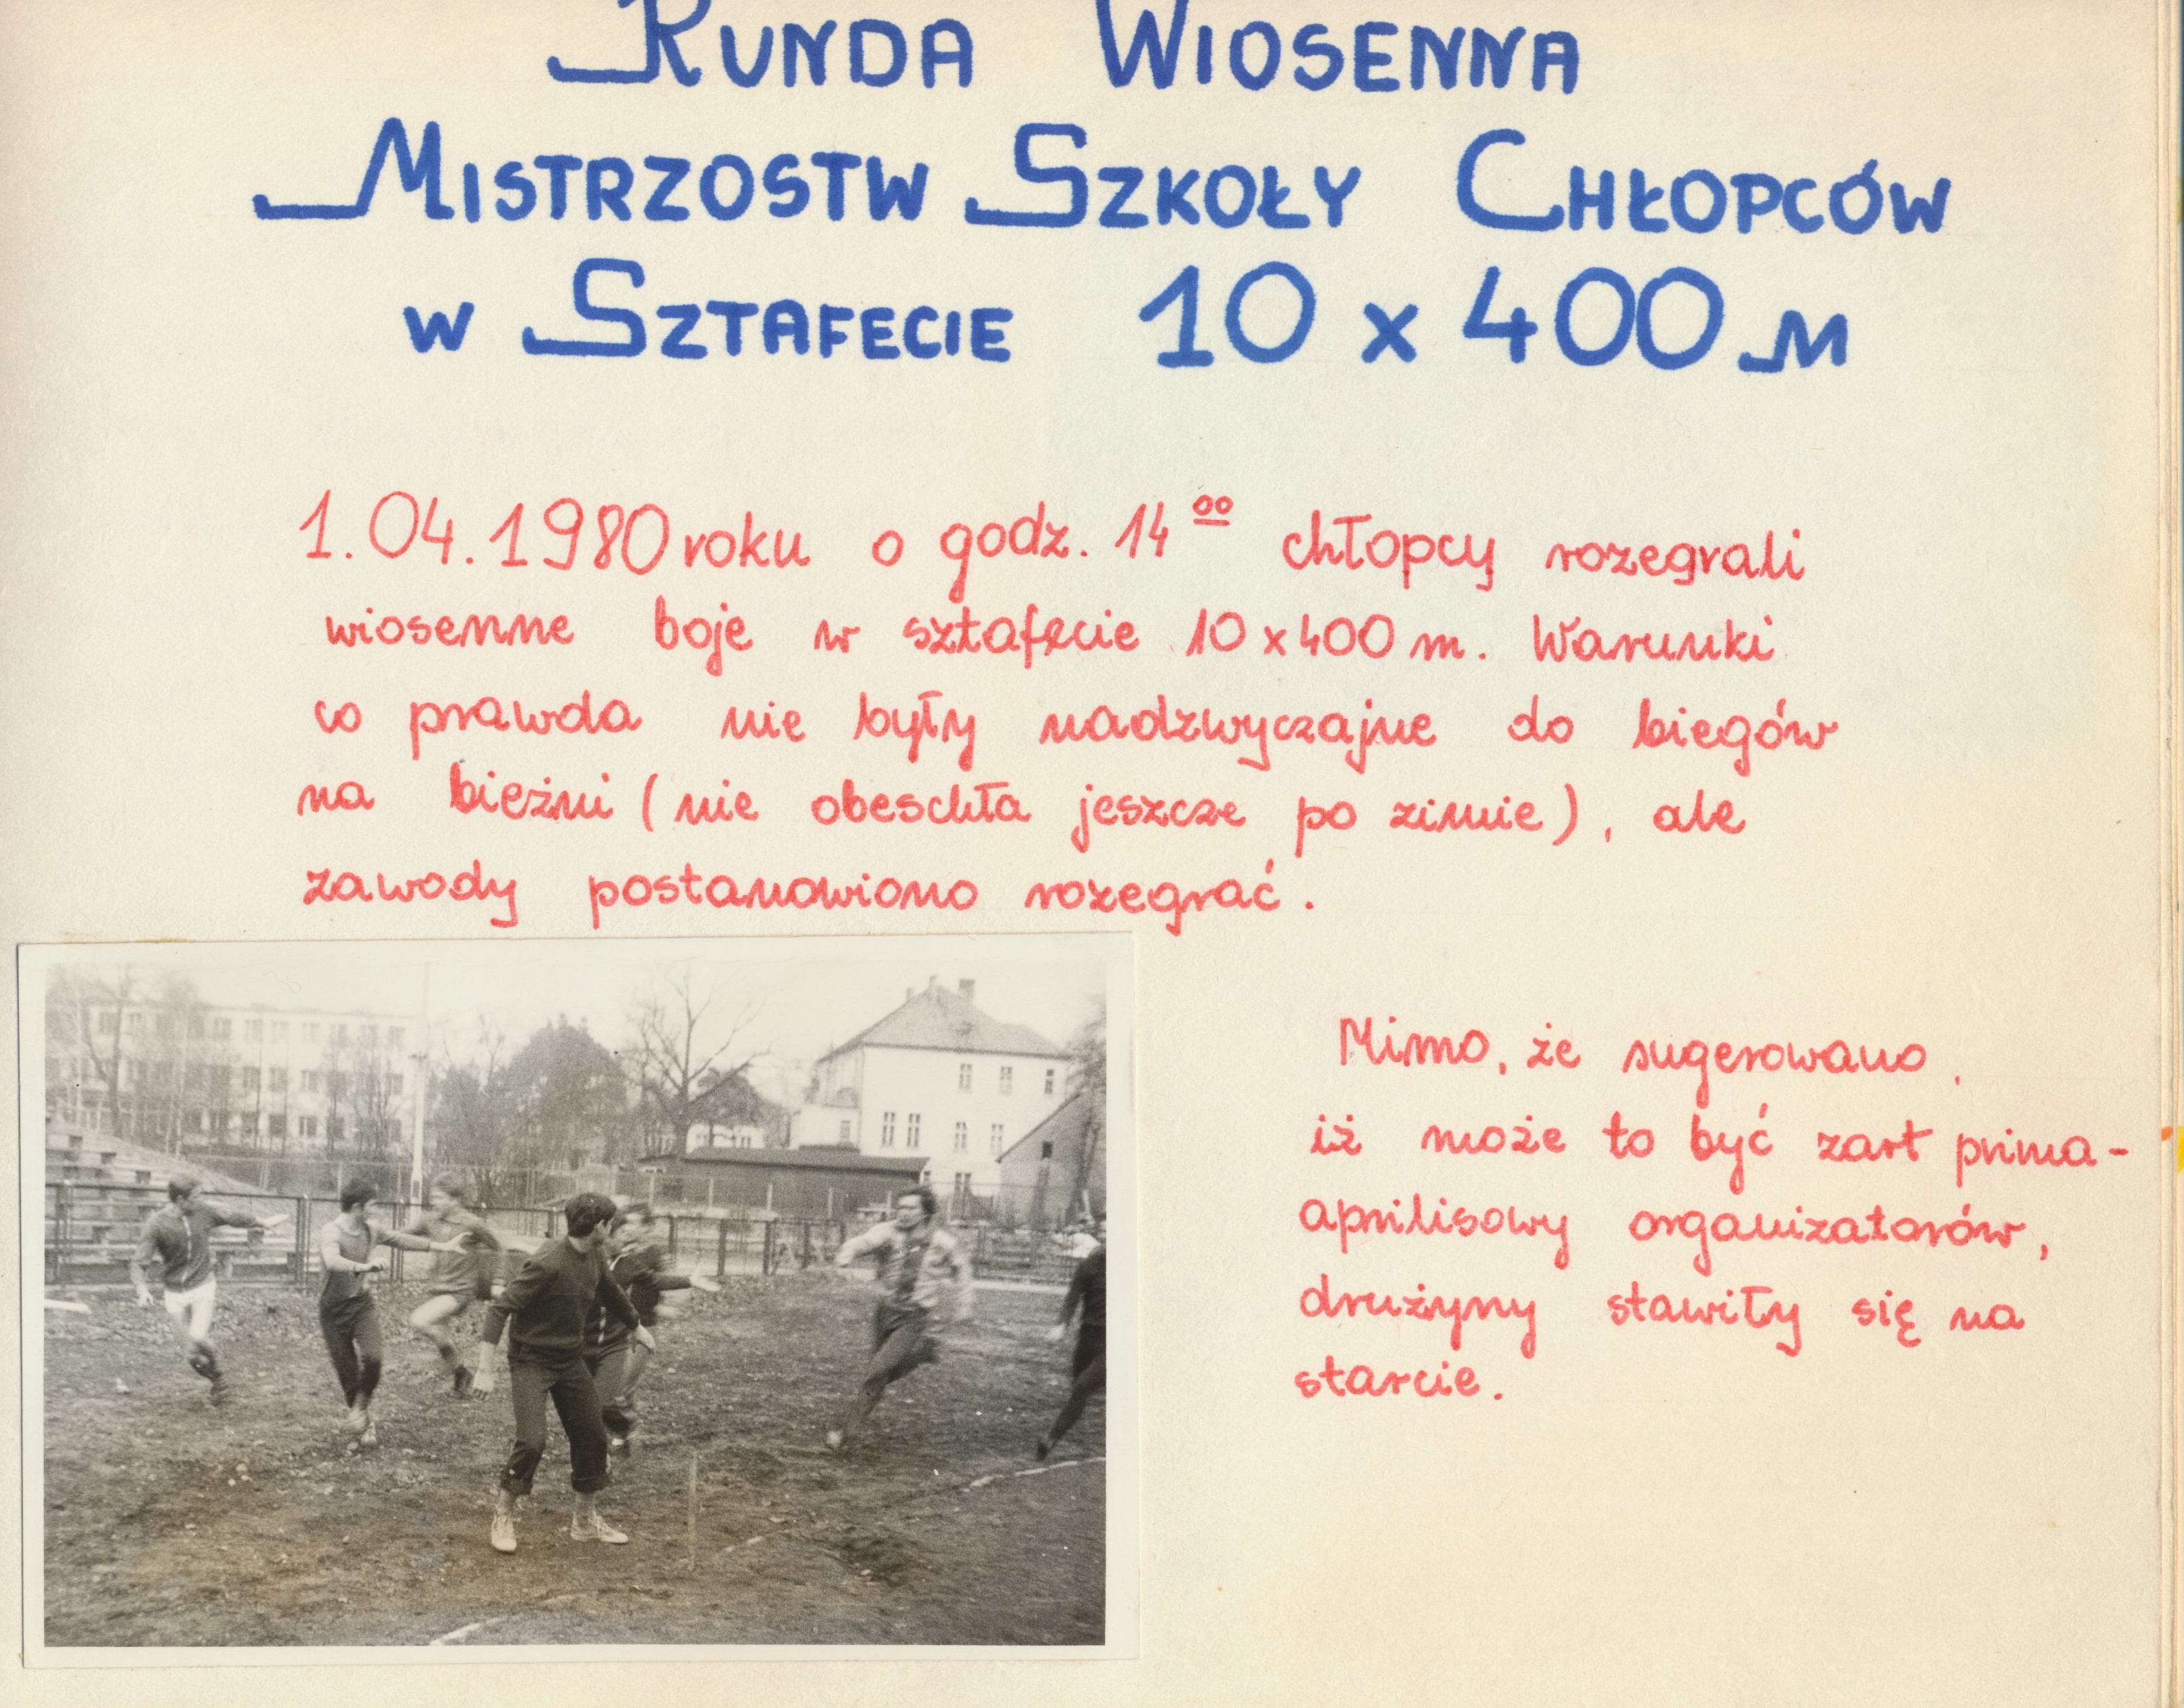 RUNDA WIOSENNA
MISTRZOSTW SZKOŁY CHŁOPCÓW
W SZTAFECIE 10 x 400 M
1.04.1980 roku o godz. 14 00 chłopcy rozegrali
wiosenne boje w sztafecie 10 x 400 m. Warunki
co prawda nie były nadzwyczajne do biegów
na bieżni (nie obeschła jeszcze po zimie), ale
zawody postanowiono rozegrać.
Mimo, że sugerowano,
iż może to być żart prima-
aprilisowy organizatorów,
drużyny stawiły się na
starcie.